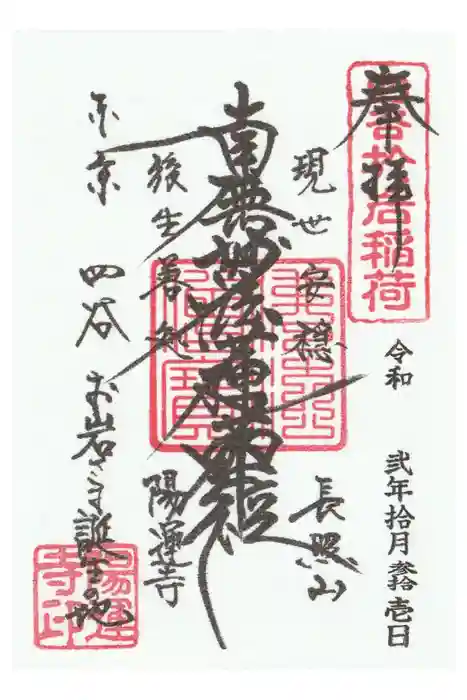 奉拝
令和 弐年拾月参拾壱日
現世安穏
長照山
南無妙法蓮華経
後生善処
陽運寺
東京 四谷 お岩さま誕生の地
稲荷
陽運寺印